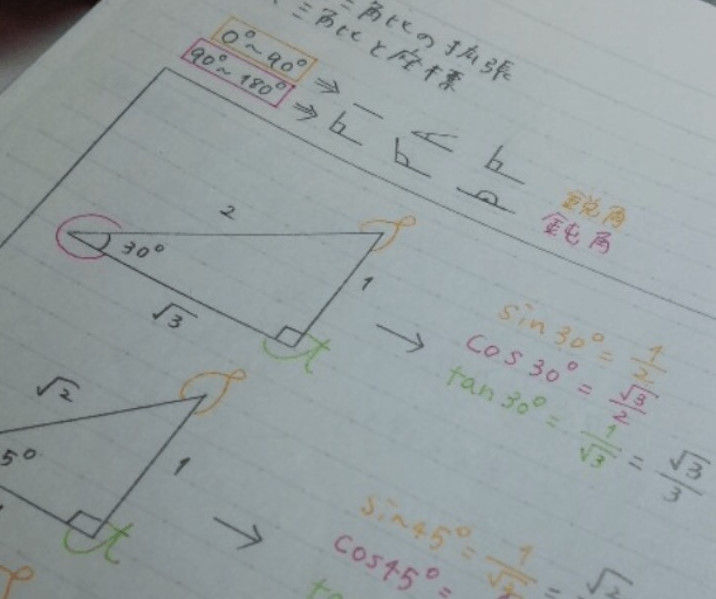 三角比の拡張
三角比と座標
0°~90° ⇒
90°~180° ⇒
鋭角
鈍角
2
30°
1
√3
→
sin30° = 1/2
cos30° = √3/2
tan30° = 1/√3 = √3/3
√2
5°
1
→
sin45° = 1/√2 = √2
cos45° =